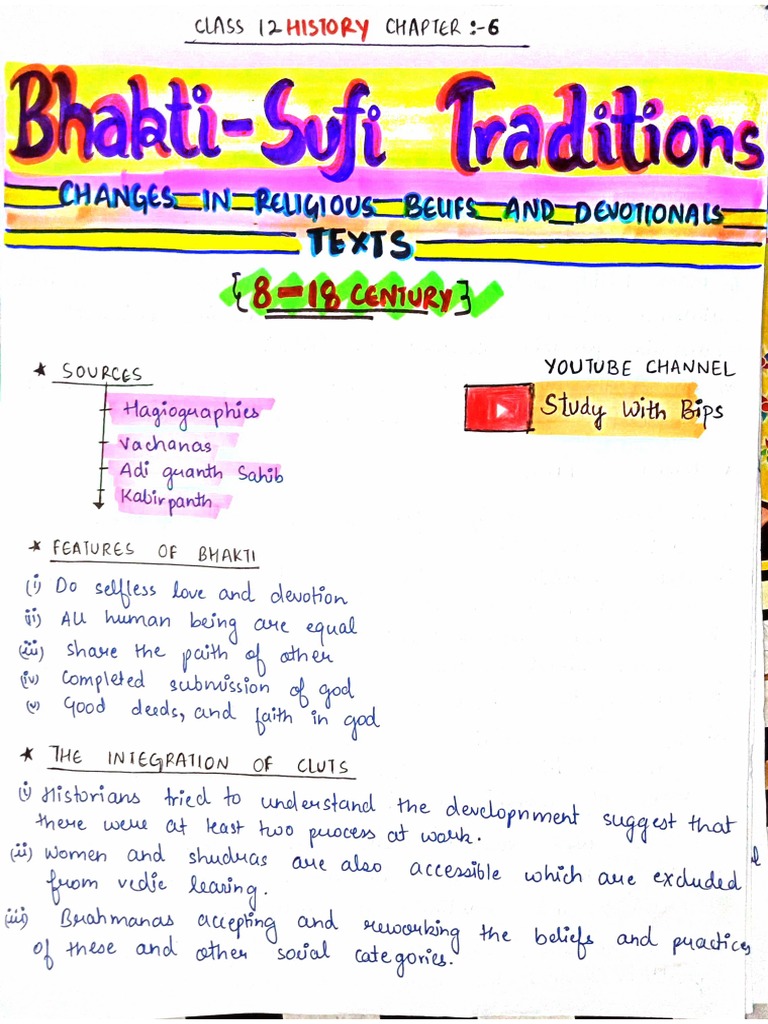 CLASS 12 HISTORY CHAPTER :-6
Bhakti-Sufi Traditions
CHANGES IN RELIGIOUS BELIFS AND DEVOTIONALS
TEXTS
{8-18 CENTURY}
* SOURCES
Hagiographies
Vachanas
Adi guanth Sahib
Kabirpanth
YOUTUBE CHANNEL
Study with Bips
* FEATURES OF BHAKTI
(i) Do selfless love and devotion
(ii) All human being are equal
(iii) Share the paith of other
(iv) Completed submission of god
(v) Good deeds, and faith in god
* THE INTEGRATION OF CLUTS
(i) Historians tried to understand the developnment suggest that
there were at least two process at work.
(ii) Women and shudras are also accessible which are excluded
from vedic learing.
(iii) Brahmanas accepting and reworking the beliefs and practices
of these and other social categories.